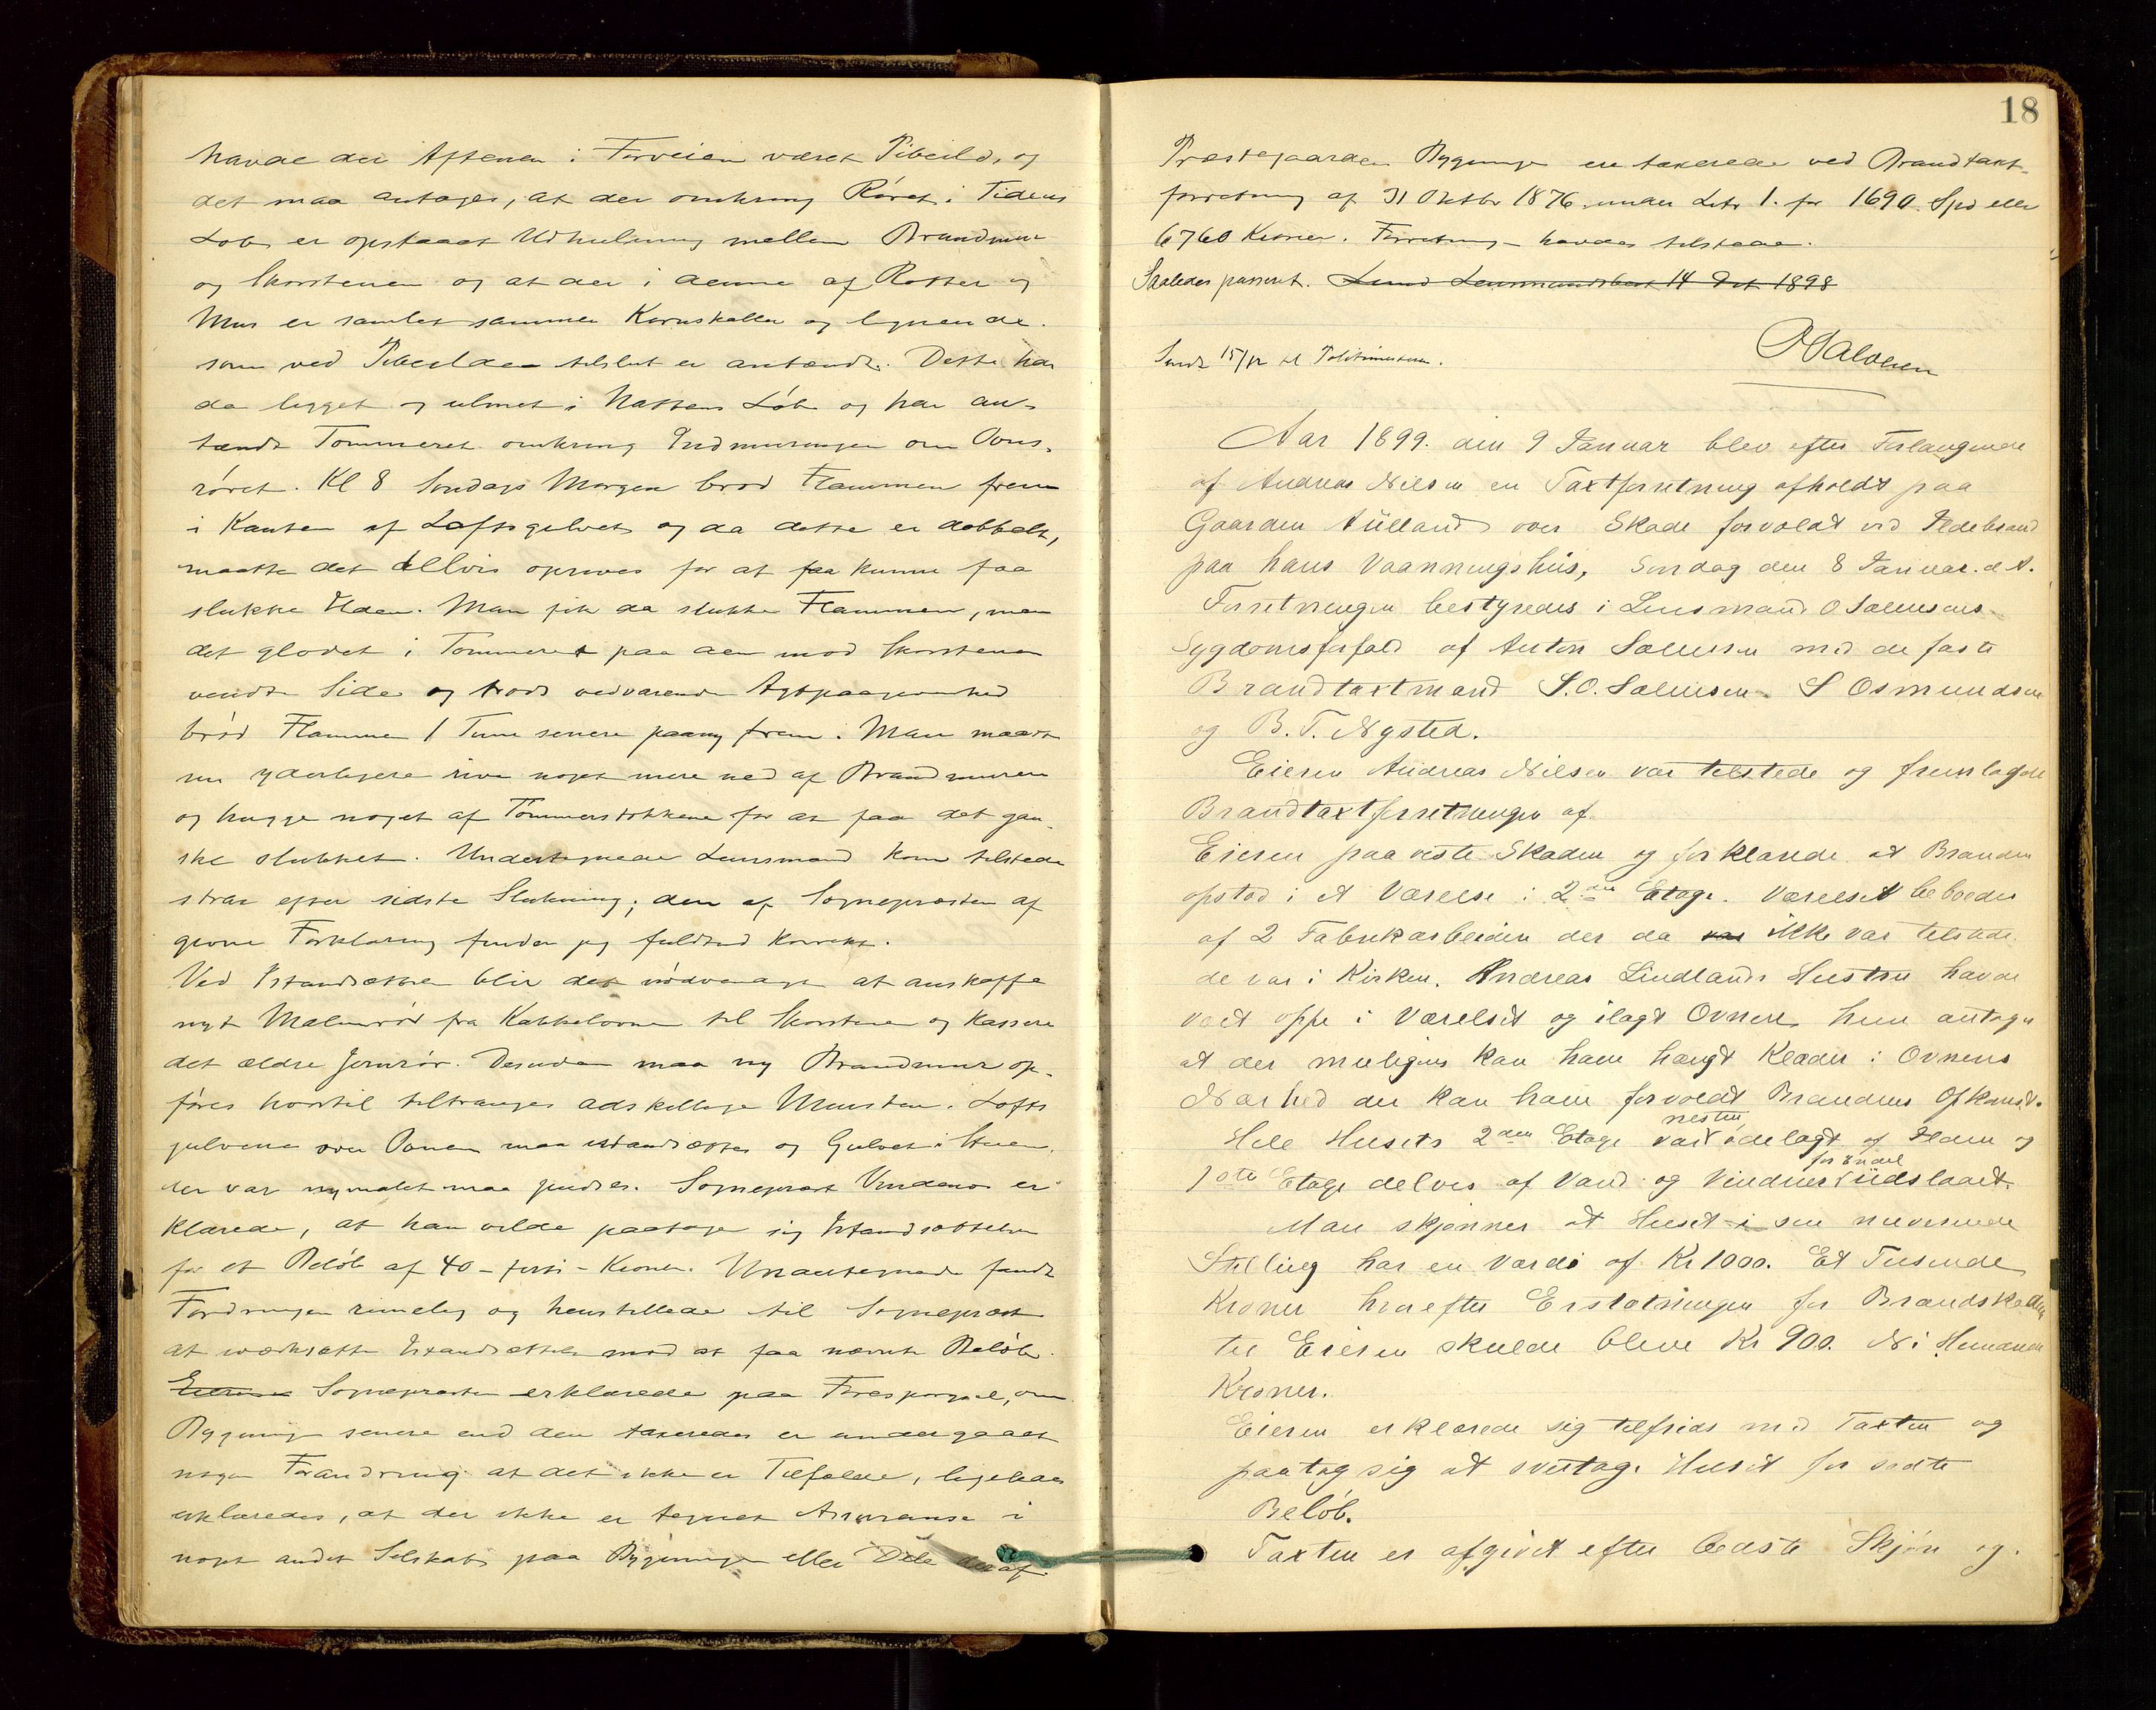 havde der Aftenen i Forveien været Pibeild, og
det maa antages, at der omkring Røret i Tidens
Løb er opstaaet Udhulning mellem Brandmur
og Skorstenen og at der i denne af Rotter og
Mus er samlet sammen Kornskaller og lignende
som ved Pibeilden tilslut er antændt. Dette har
da ligget og ulmet i Nattens Løb og har an-
tændt Tømmeret omkring Indmuringen om Ovns-
røret. Kl 8 Søndags Morgen brød Flammen frem
i Kanten af Loftsgulvet og da dette er dobbelt,
maatte det delvis oprives for at faa kunne faa
slukke Ilden. Man fik da slukke Flammen, men
det glødet i Tømmeret paa den mod Skorstenen
vendte Side og trods vedvarende Agtpaagivenhed
brød Flammen 1 Time senere paany frem. Man maatte
nu yderligere rive noget mere ned af Brandmuren
og hugge noget af Tømmerstokkene for at faa det gan-
ske slukket. Undertegnede Lensmand kom tilstede
strax efter sidste Slukning; den af Sogneprästen af
givne Forklaring finder jeg fuldtud korrekt.
Ved Istandsættelsen blir det nødvendigt at anskaffe
nyt Malmrør fra Kakkelovnen til Skorstenen og kassere
det ældre Jernrør. Desuden maa ny Brandmur op-
føres hvortil tiltrænges adskellige Mursten. Lofts
gulvene over Ovnen maa istandsættes og Gulvet i Stuen,
der var nymalet maa pudses. Sogneprest er
klærede, at han vilde paatage sig Istandsættelsen
for et Beløb af 40 - forti - Kroner. Undertegnede fandt
Fordringen rimelig og henstillede til Sognepresten
at iværksætte Istandsættelsen mod at faa nævnte Beløb.
Eieren Sognepræsten erklærede paa Forespørgsel, om
Bygningen senere end den taxeredes er undergaaet
nogen Forandring at det ikke er Tilfælde, ligeledes
erklæredes, at der ikke er tegnet Assuranse i
noget andet Selskab paa Bygningen eller Dele deraf.
18
Præstegaardens Bygninger ere taxerede ved Brandtaxt-
forretning af 31 Oktbr 1876 under Litr 1. for 1690 Spd eller
6760 Kroner. Forretningen havdes tilstede.
Saaledes passeret. Lund Lensmandsbest 14 Det 1898
Sendt 15/12 til Politimesteren.
Aar 1899. den 9 Januar blev efter Forlangende
af Andreas Nilsen en Taxtforretning afholdt paa
Gaarden over Skade forvoldt ved Ildebrand
paa hans Vaanningshus, Søndag den 8 Januar. d. A.
Forretningen bestyredes i Lensmand O Salvesens
Sygdomsforfald af Anton Salvesen med de faste
Brandtaxtmænd S. O. Salvesen. S Osmundsen
og B. T. Nysted.
Eieren Andreas Nilsen var tilstede og fremlagde
Brandtaxtforretningen af
Eieren paaviste Skaden og forklarede at Branden
opstod i et Værelse i 2den Etage. Værelset beboedes
af 2 Fabrikarbeidere der da var ikke var tilstede
de var i Kirken. Andreas Lindlands Hustru havde
været oppe i Værelset og ilagt Ovnen hun antager
at der muligens kan have hængt Klæder i Ovnens
Nærhed der kan have forvoldt Brandens Opkomst.
Hele Husets 2den Etage var nesten ødelagt af Ilden og
1ste Etage delvis af Vand og Vinduer for Endel udslaaet.
Man skjønner at Huset i sin nuværende
Stilling har en Værdi af Kr 1000. Et Tusende
Kroner hvorefter Erstatningen for Brandskaden
til Eieren skulde blive Kr 900. Ni Hundrede
Kroner.
Eieren erklærede sig tilfrids med Taxten og
paatog sig at overtage Huset for
Beløb.
Taxten er afgivet efter bedste Skjøn og